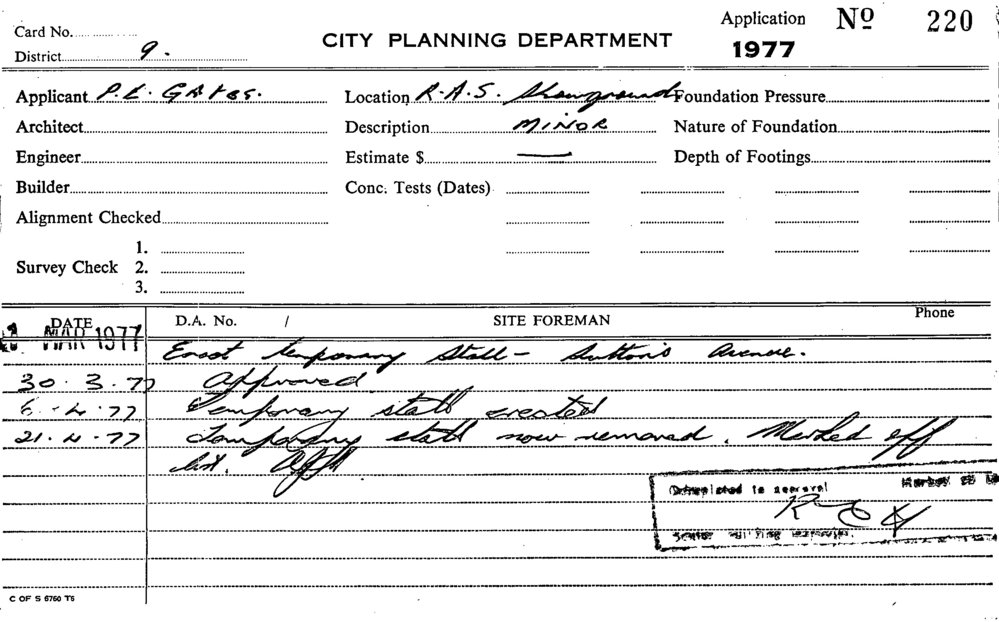 Card No.
District 9.
CITY PLANNING DEPARTMENT
Application Nº 220
1977
Applicant P.L. GATES.
Location R.A.S. Showground
Foundation Pressure
Architect
Description MINOR
Nature of Foundation
Engineer
Estimate $ —
Depth of Footings
Builder
Conc. Tests (Dates)
Alignment Checked
Survey Check 1.
2.
3.
DATE D.A. No. / SITE FOREMAN Phone
MAR 1977
Erect temporary stall - Sutton's Avenue.
30.3.77 Approved
6.4.77 Temporary stall erected
21.4.77 Temporary stall now removed. Marked off
list.
Completed to approval
Senior Building Inspector.
C OF S 6760 T5